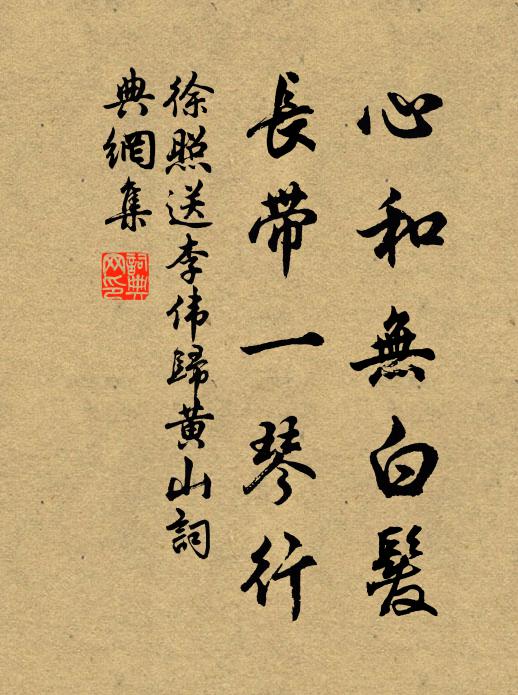 心和無白髮
長帶一琴行
徐照送李伟歸黄山詞
典網集
詞典网印